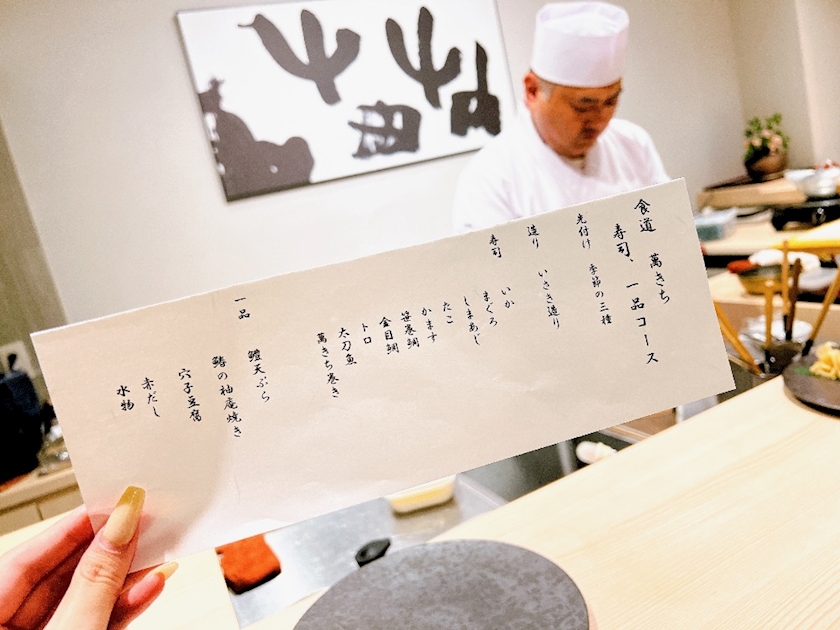 食道 萬きち
寿司、一品コース
先付け 季節の三種
造り いさき造り
寿司 いか
まぐろ
しまあじ
たこ
かます
笹巻鯛
金目鯛
トロ
太刀魚
萬きち巻き
一品 鱧天ぷら
鰆の柚庵焼き
穴子豆腐
赤だし
水物